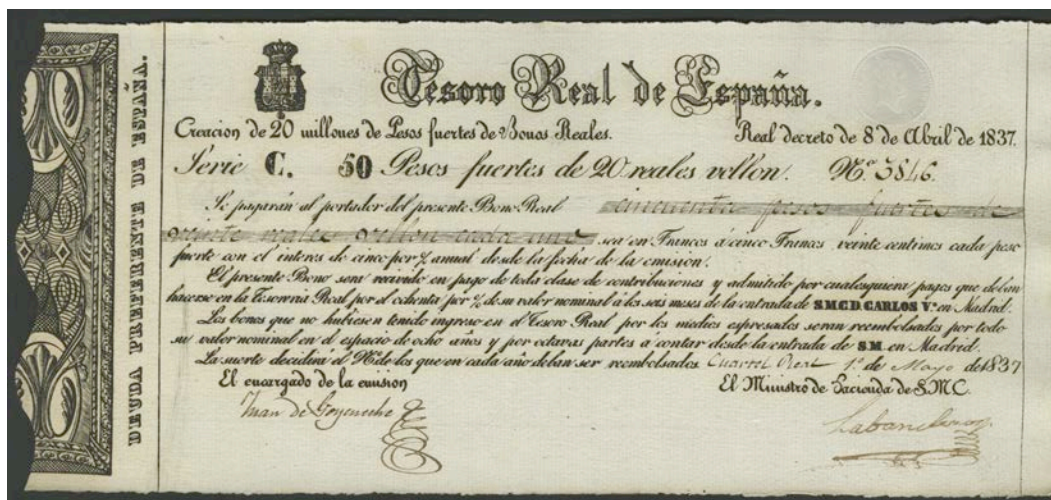 DEUDA PREFERENTE DE ESPAÑA.
Tesoro Real de España.
Creacion de 20 millones de Pesos fuertes de Bonos Reales. Real decreto de 8 de Abril de 1837.
Série C. 50 Pesos fuertes de 20 reales vellon. N.º 3846.
Se pagarán al portador del presente Bono Real cincuenta pesos fuertes de
veinte reales vellon cada uno sea en Francos á cinco Francos veinte centimos cada peso
fuerte con el interes de cinco por % anual desde la fecha de la emision.
El presente Bono sera recivido en pago de toda clase de contribuciones y admitido por cualesquiera pagos que deban
hacerse en la Tesorria Real por el ochenta por % de su valor nominal a los seis meses de la entrada de S.M.C.D. CARLOS V.º en Madrid.
Los bonos que no hubiesen tenido ingreso en el Tesoro Real por los medios espresados seran reembolsados por todo
su valor nominal en el espacio de ocho anos y por octavas partes a contar desde la entrada de S.M. en Madrid.
La suerte decidirá el Nº de los que en cada año deban ser reembolsados Cuartel Real 1.º de Mayo de 1837
El encargado de la emision El Ministro de Hacienda de S.M.C.
Juan de Goyeneche